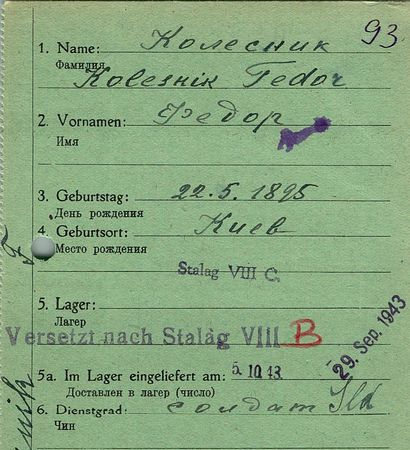 93
1. Name: Колесник
Фамилия
Kolesnik Fedor
2. Vornamen: Федор
Имя
3. Geburtstag: 22.5.1895
День рождения
4. Geburtsort: Киев
Место рождения
Stalag VIII C.
5. Lager:
Лагерь
Versetzt nach Stalag VIII B
29. Sep. 1943
5a. Im Lager eingeliefert am: 5.10.43.
Доставлен в лагерь (число)
6. Dienstgrad: солдат Sld
Чин